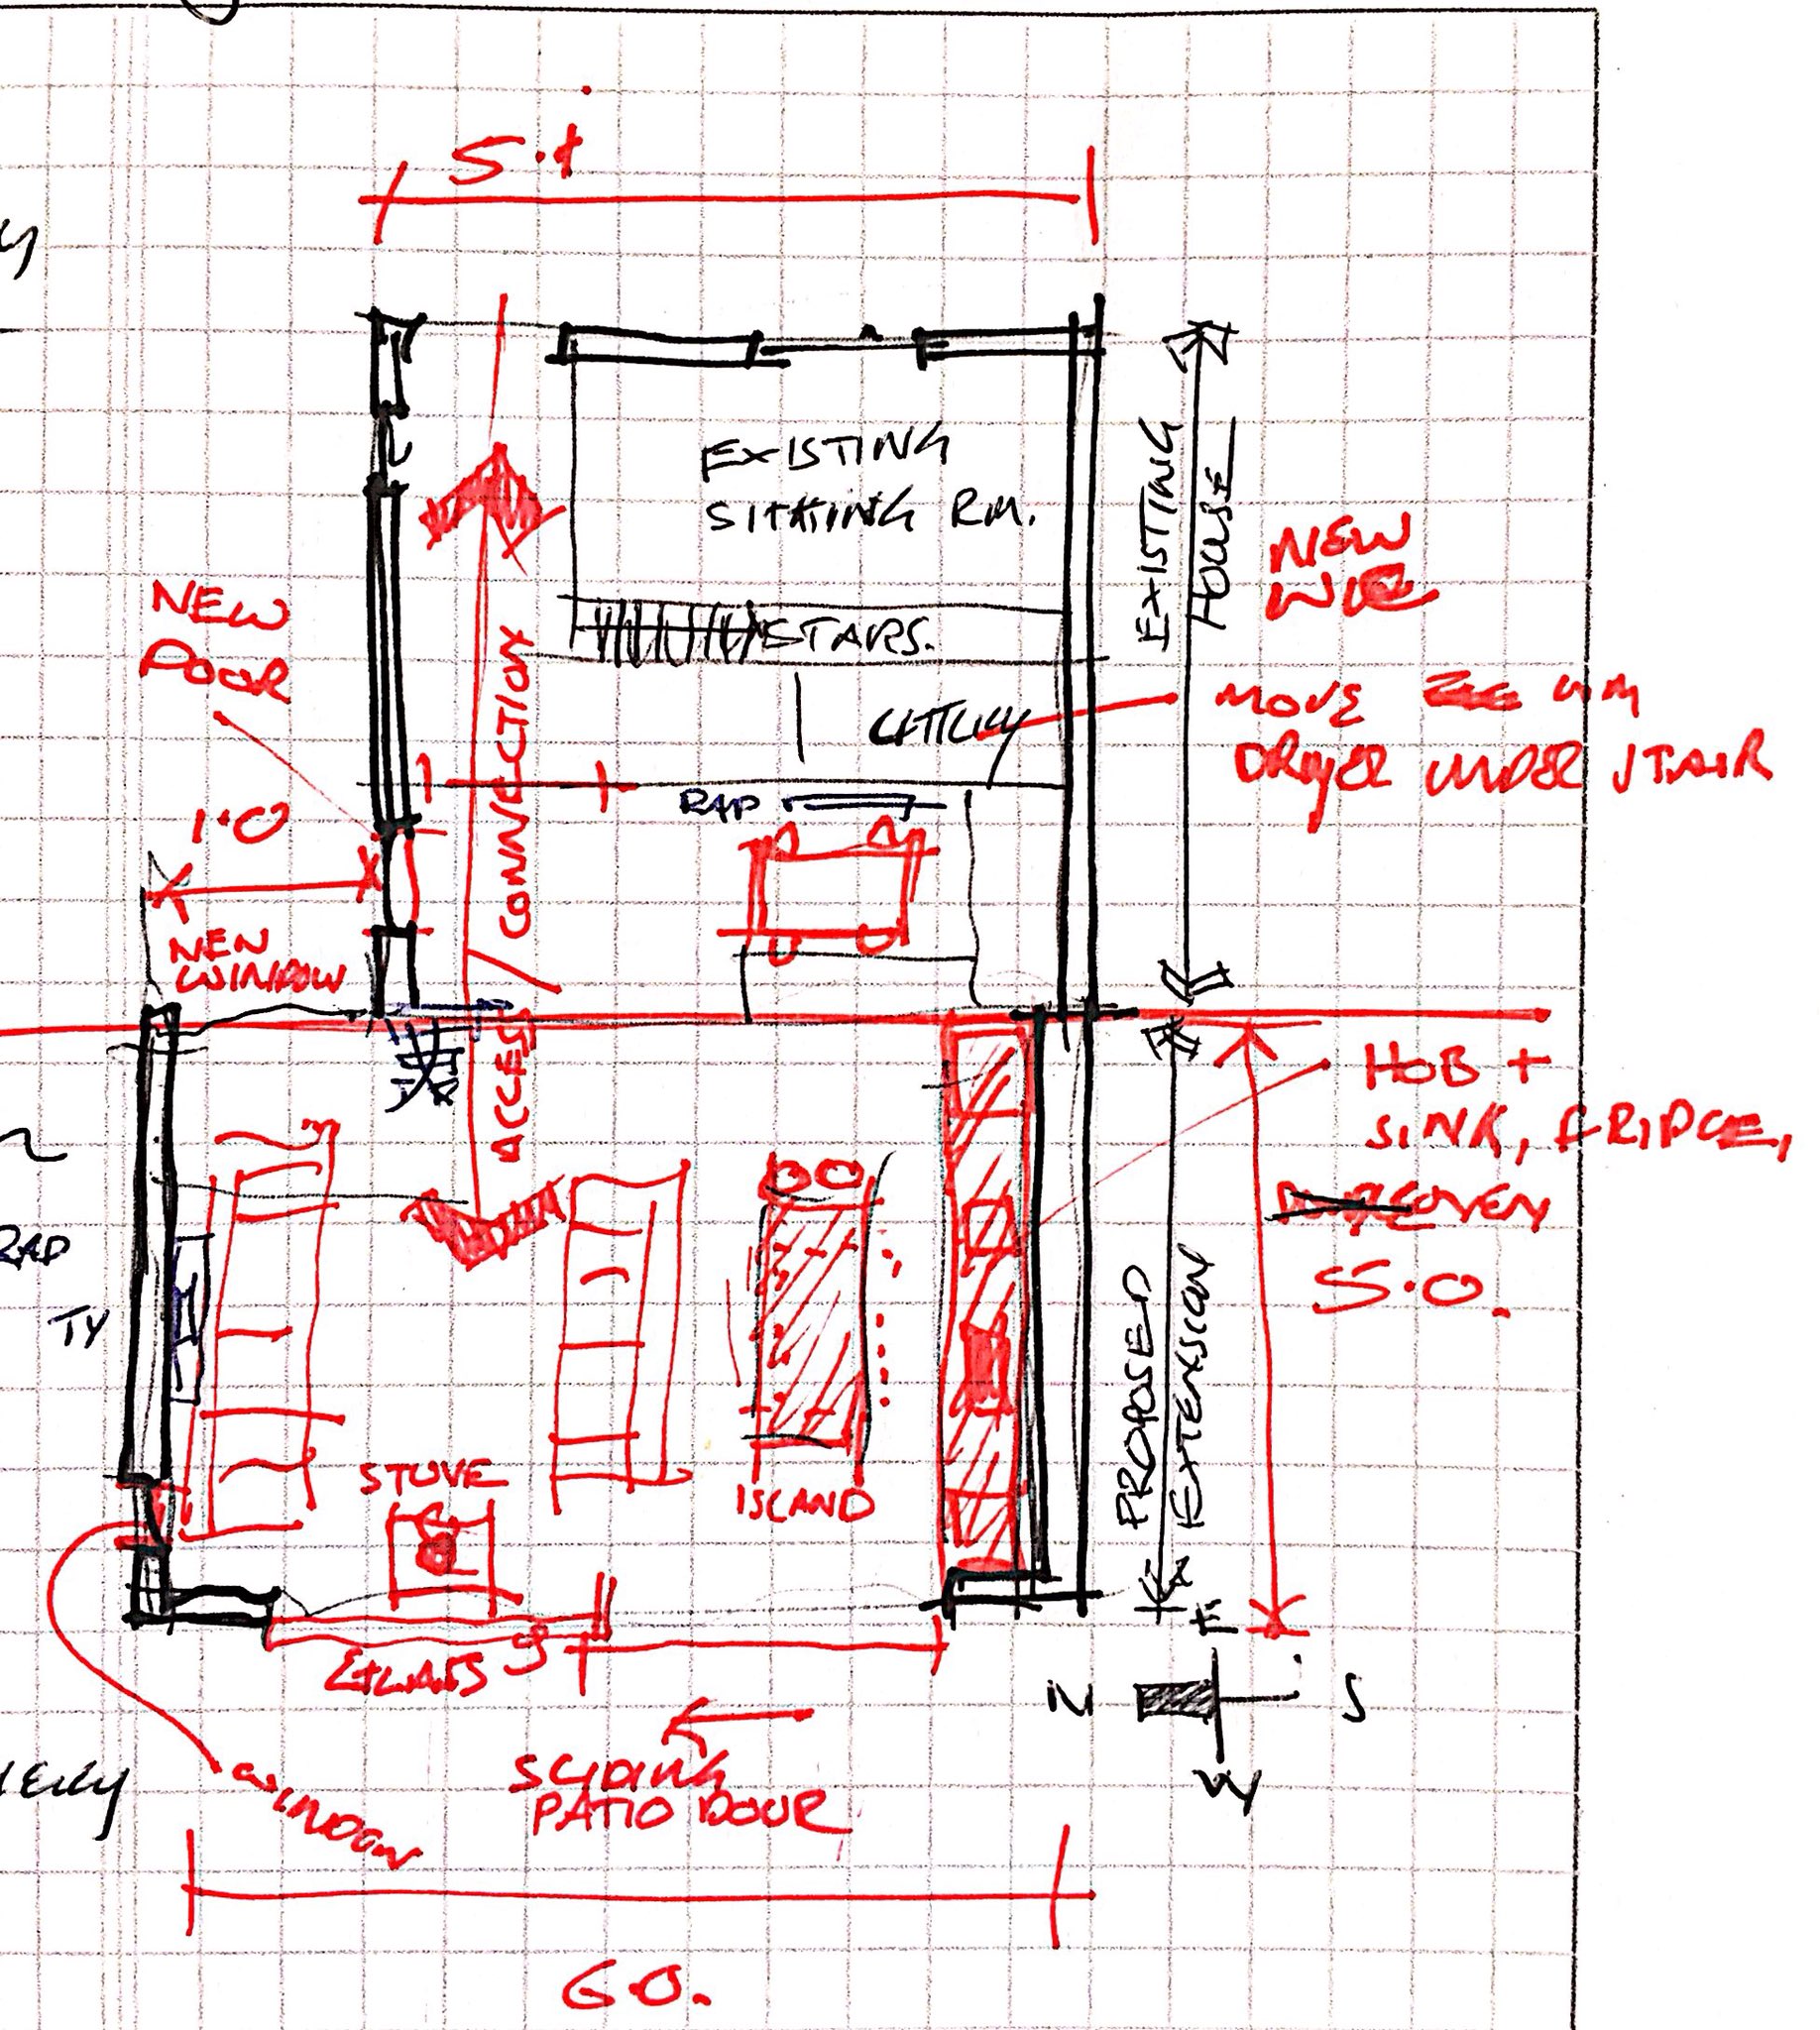 5.1
EXISTING
SITTING RM.
STAIRS.
UTILITY
RAD
EXISTING
HOUSE
NEW
MOVE WM
DRYER UNDER STAIR
NEW
DOOR
1.0
NEW
WINDOW
CONNECTION
ACCESS
HOB +
SINK, FRIDGE,
OVEN
5.0.
PROPOSED
EXTENSION
RAD
TV
STOVE
ISLAND
GLASS
SLIDING
PATIO DOOR
WINDOW
E
N
S
W
6.0.